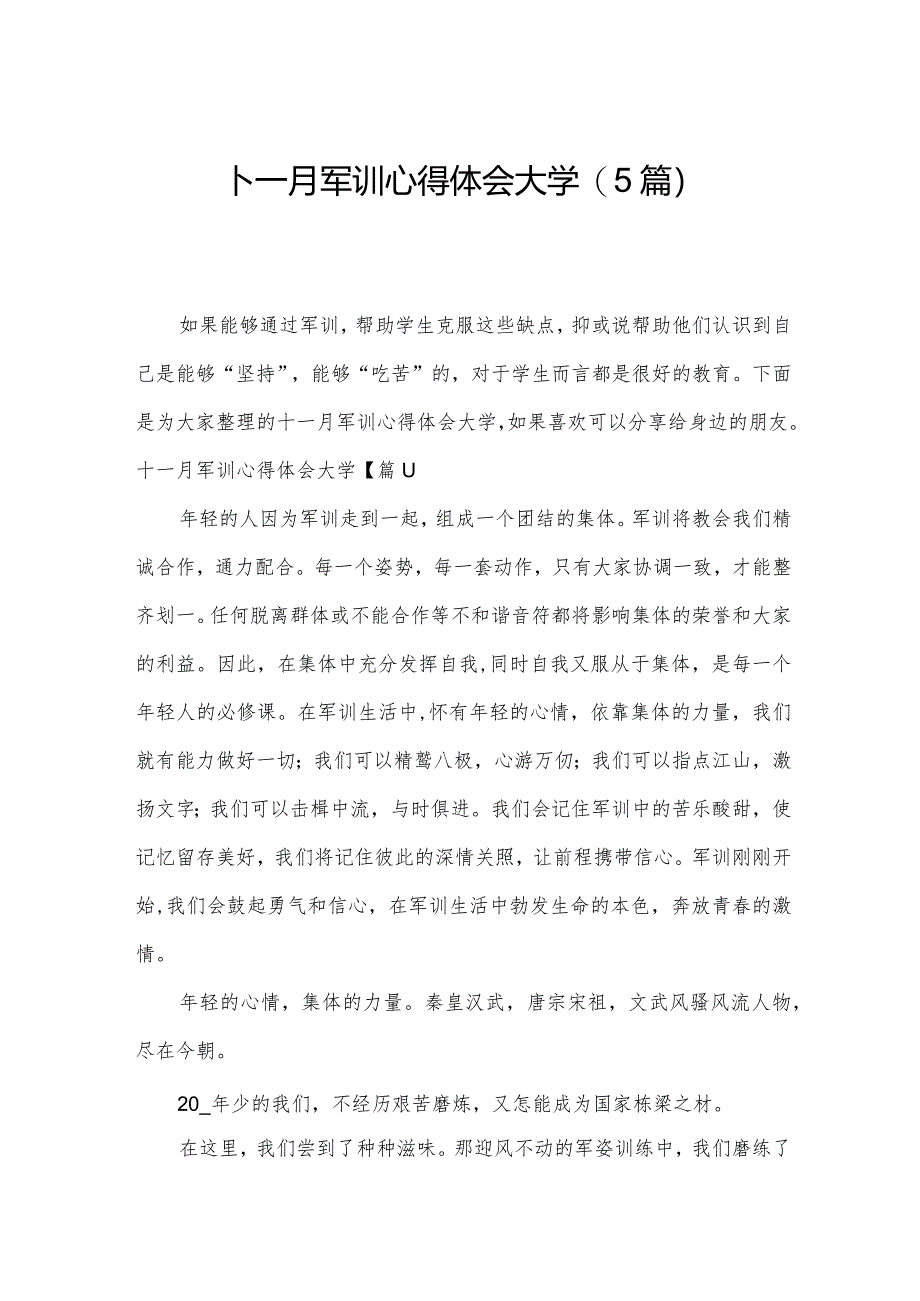 卜一月军训心得体会大学（5篇)
如果能够通过军训，帮助学生克服这些缺点，抑或说帮助他们认识到自
己是能够“坚持”，能够“吃苦”的，对于学生而言都是很好的教育。下面
是为大家整理的十一月军训心得体会大学，如果喜欢可以分享给身边的朋友。
十一月军训心得体会大学【篇U
年轻的人因为军训走到一起，组成一个团结的集体。军训将教会我们精
诚合作，通力配合。每一个姿势，每一套动作，只有大家协调一致，才能整
齐划一。任何脱离群体或不能合作等不和谐音符都将影响集体的荣誉和大家
的利益。因此，在集体中充分发挥自我,同时自我又服从于集体，是每一个
年轻人的必修课。在军训生活中,怀有年轻的心情，依靠集体的力量，我们
就有能力做好一切；我们可以精鹜八极，心游万仞；我们可以指点江山，激
扬文字；我们可以击楫中流，与时俱进。我们会记住军训中的苦乐酸甜，使
记忆留存美好，我们将记住彼此的深情关照，让前程携带信心。军训刚刚开
始,我们会鼓起勇气和信心，在军训生活中勃发生命的本色，奔放青春的激
情。
年轻的心情，集体的力量。秦皇汉武，唐宗宋祖，文武风骚风流人物，
尽在今朝。
20_年少的我们，不经历艰苦磨炼，又怎能成为国家栋梁之材。
在这里，我们尝到了种种滋味。那迎风不动的军姿训练中，我们磨练了